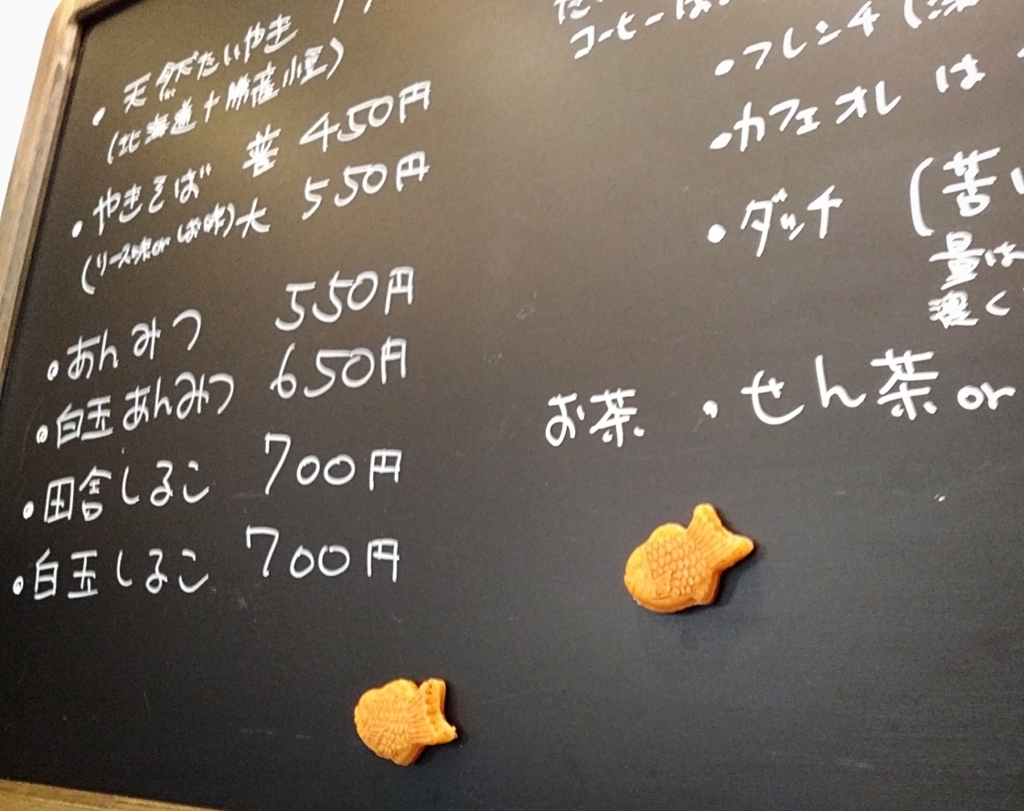 ・天然たいやき
(北海道十勝産小豆)
・やきそば 普 450円
(ソース味or しお味)大 550円
・あんみつ 550円
・白玉あんみつ 650円
・田舎しるこ 700円
・白玉しるこ 700円
コーヒーは
・フレンチ(深
・カフェオレは
・ダッチ (苦い
量は
濃く
お茶 ・せん茶 or